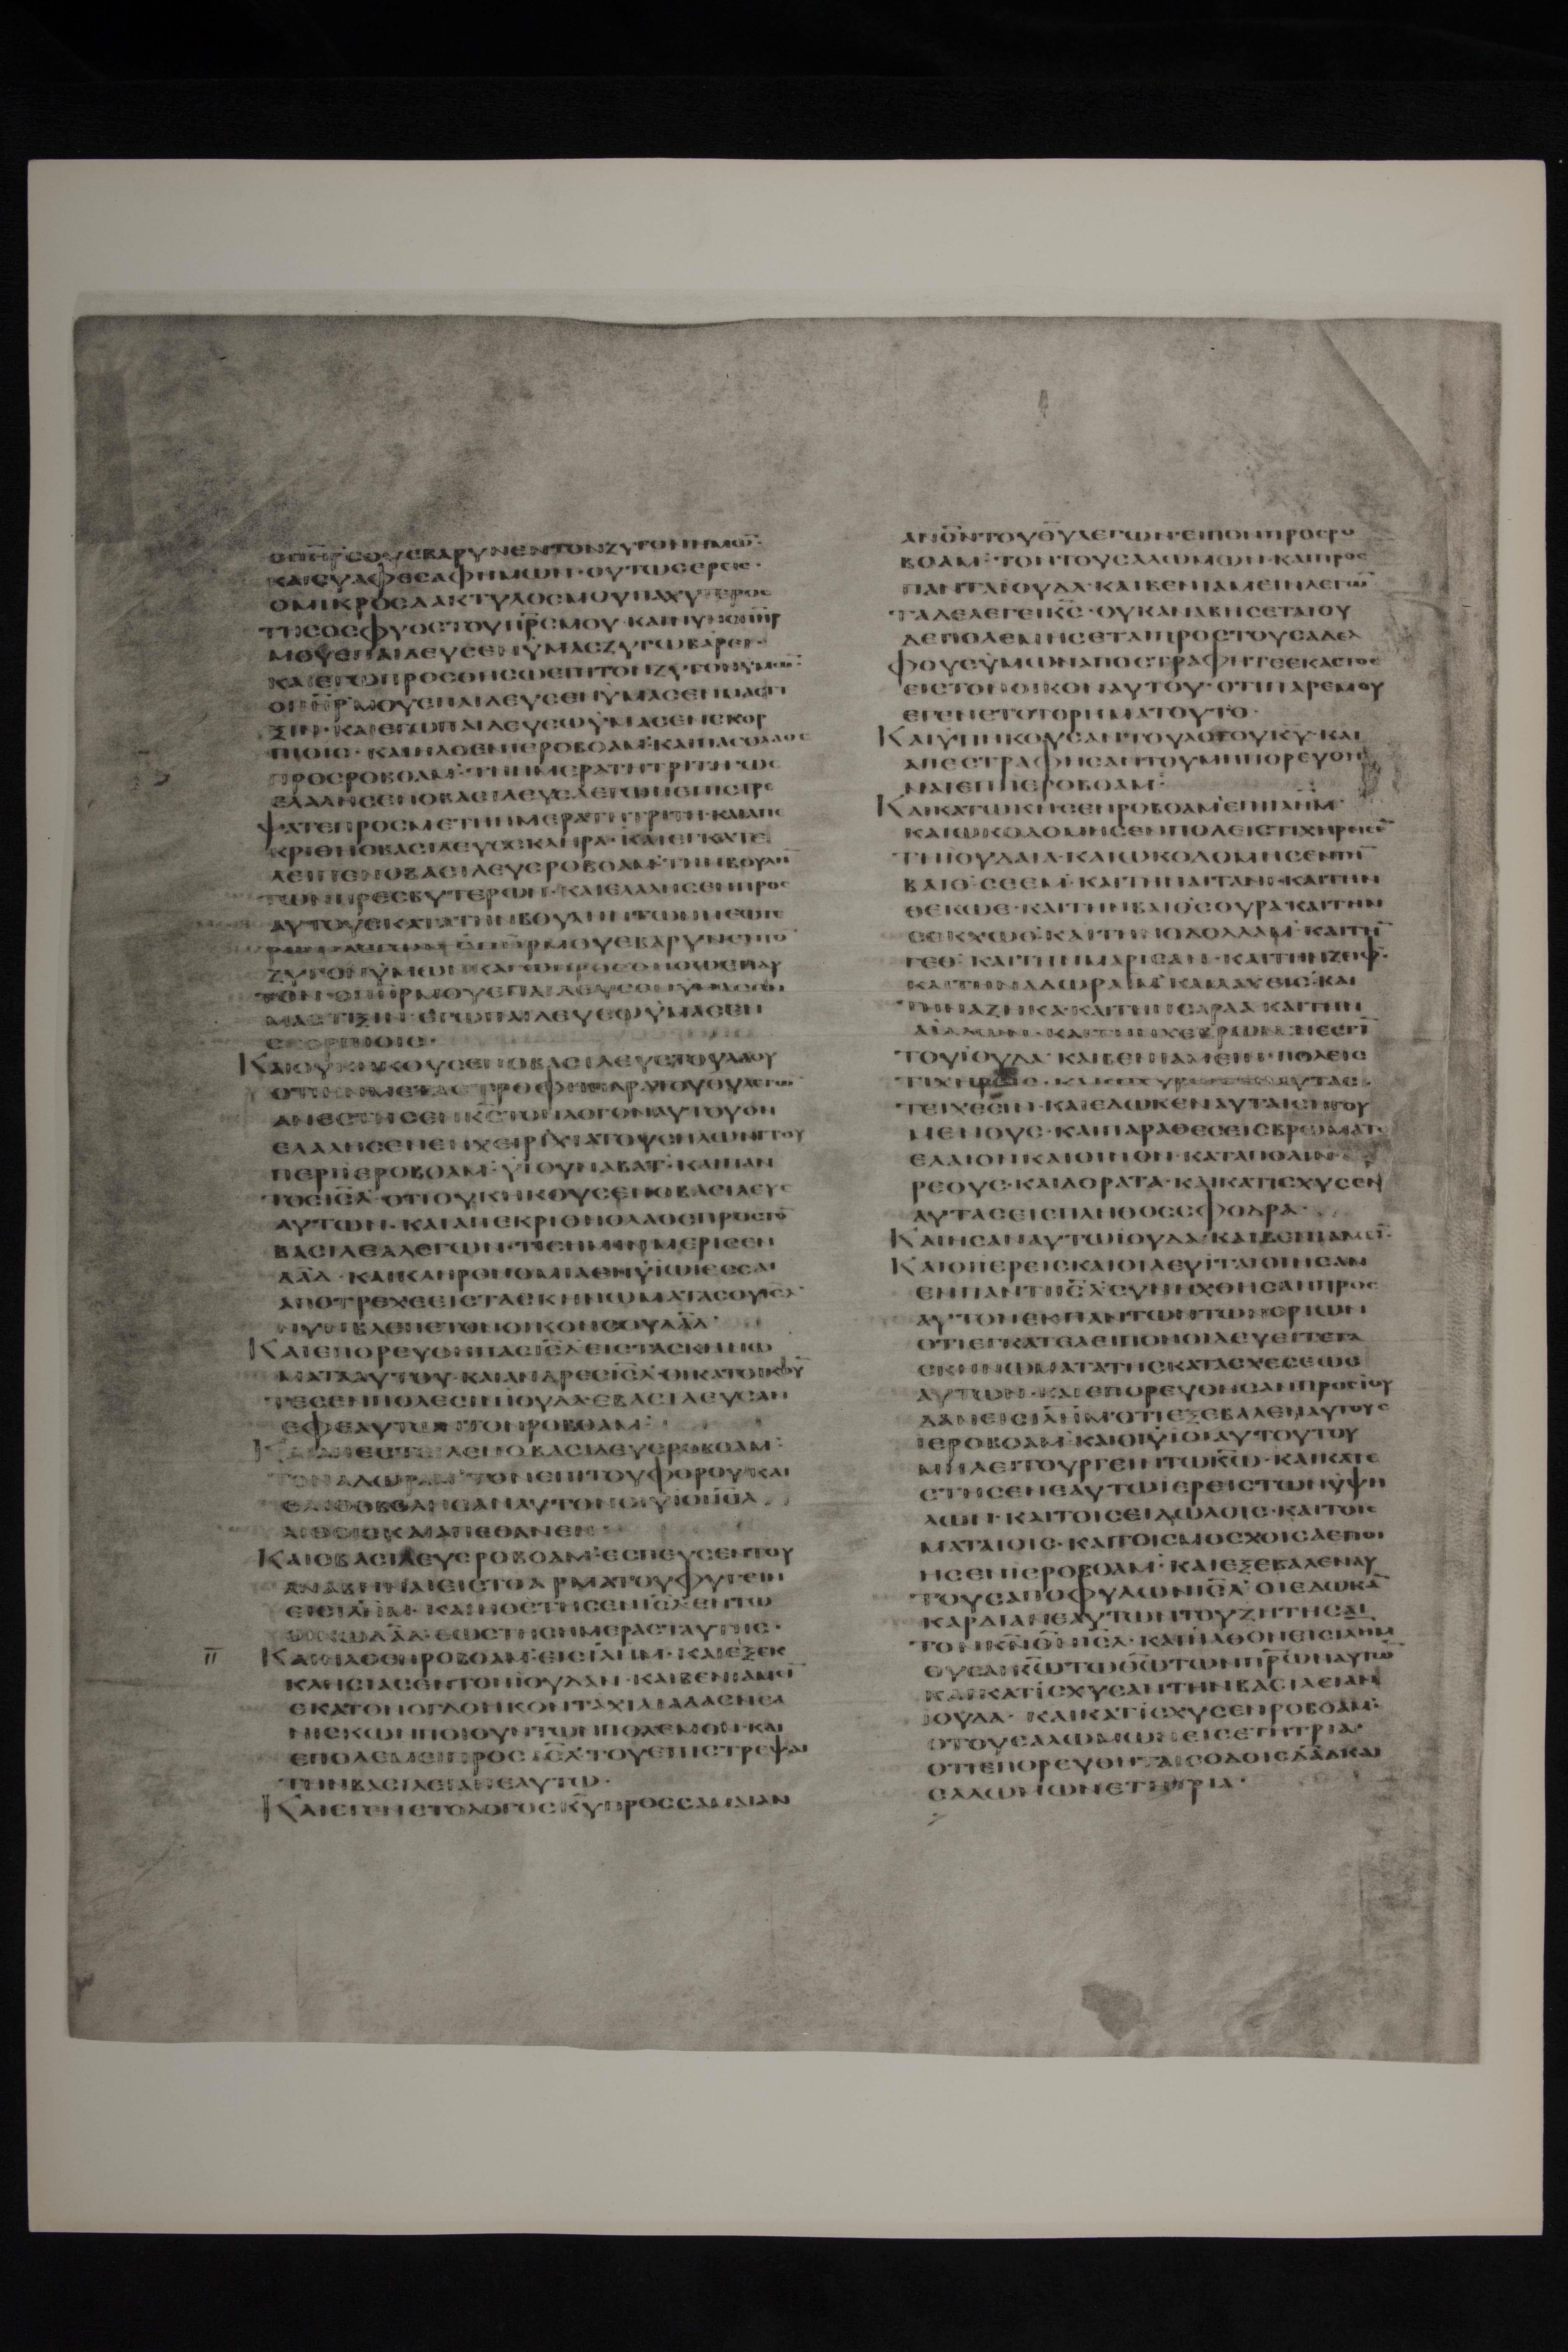 ΟΠ̅Η̅Ρ̅ΣΟΥΕΒΑΡΥΝΕΝΤΟΝΖΥΓΟΝΗΜΩ̅·
ΚΑΙΣΥΑΦΕΣΑΦΗΜΩΝ·ΟΥΤΩΣΕΡΕΙΣ·
ΟΜΙΚΡΟΣΔΑΚΤΥΛΟΣΜΟΥΠΑΧΥΤΕΡΟΣ
ΤΗΣΟΣΦΥΟΣΤΟΥΠ̅Ρ̅Σ̅ΜΟΥ·ΚΑΙΝΥΝΟΠ̅Η̅Ρ̅
ΜΟΥΕΠΑΙΔΕΥΣΕΝΫΜΑΣΖΥΓΩΒΑΡΕΙ·
ΚΑΙΕΓΩΠΡΟΣΘΗΣΩΕΠΙΤΟΝΖΥΓΟΝΥΜΩ̅·
ΟΠ̅Η̅Ρ̅ΜΟΥΕΠΑΙΔΕΥΣΕΝΫΜΑΣΕΝΜΑΣΤΙ
ΞΙΝ·ΚΑΙΕΓΩΠΑΙΔΕΥΣΩΫΜΑΣΕΝΣΚΟΡ
ΠΙΟΙΣ·ΚΑΙΗΛΘΕΝΙΕΡΟΒΟΑΜ·ΚΑΙΠΑΣΟΛΑΟΣ
ΠΡΟΣΡΟΒΟΑΜ·ΤΗΗΜΕΡΑΤΗΤΡΙΤΗ·ΩΣ
ΕΛΑΛΗΣΕΝΟΒΑΣΙΛΕΥΣΛΕΓΩΝΕΠΙΣΤΡΕ
ΨΑΤΕΠΡΟΣΜΕΤΗΗΜΕΡΑΤΗΤΡΙΤΗ·ΚΑΙΑΠΕ
ΚΡΙΘΗΟΒΑΣΙΛΕΥΣΣΚΛΗΡΑ·ΚΑΙΕΓΚΑΤΕ
ΛΕΙΠΕΝΟΒΑΣΙΛΕΥΣΡΟΒΟΑΜ·ΤΗΝΒΟΥΛΗ̅
ΤΩΝΠΡΕΣΒΥΤΕΡΩΝ·ΚΑΙΕΛΑΛΗΣΕΝΠΡΟΣ
ΑΥΤΟΥΣΚΑΤΑΤΗΝΒΟΥΛΗΝΤΩΝΝΕΩΤΕ
ΟΠ̅Η̅Ρ̅ΜΟΥΕΒΑΡΥΝΕΝΤΟ̅
ΖΥΓΟΝΫΜΩΝΚΑΓΩΠΡΟΣΘΗΣΩΕΠΑΥ
ΤΟΝ·ΟΠ̅Η̅Ρ̅ΜΟΥΕΠΑΙΔΕΥΣΕΝΫΜΑΣΕΝ
ΜΑΣΤΙΞΙΝ·ΕΓΩΠΑΙΔΕΥΣΩΫΜΑΣΕΝ
ΣΚΟΡΠΙΟΙΣ·
ΚΑΙΟΥΚΗΚΟΥΣΕΝΟΒΑΣΙΛΕΥΣΤΟΥΛΑΟΥ
ΟΤΙΗΝΜΕΤΑΣΤΡΟΦΗΠΑΡΑΤΟΥΘ̅Υ̅ΛΕΓΩ̅·
ΑΝΕΣΤΗΣΕΝΚ̅Σ̅ΤΟΝΛΟΓΟΝΑΥΤΟΥΟΝ
ΕΛΑΛΗΣΕΝΕΝΧΕΙΡΙΑΧΙΑΤΟΥΣΗΛΩΝΙΤΟΥ
ΠΕΡΙΙΕΡΟΒΟΑΜ·ΫΙΟΥΝΑΒΑΤ·ΚΑΙΠΑΝ
ΤΟΣΙ̅Σ̅Λ̅·ΟΤΙΟΥΚΗΚΟΥΣΕΝΟΒΑΣΙΛΕΥΣ
ΑΥΤΩΝ·ΚΑΙΑΠΕΚΡΙΘΗΟΛΑΟΣΠΡΟΣΤΟ̅
ΒΑΣΙΛΕΑΛΕΓΩΝ·ΤΙΣΗΜΙΝΜΕΡΙΣΕΝ
Δ̅Α̅Δ̅·ΚΑΙΚΛΗΡΟΝΟΜΙΑΕΝΫΙΩΙΕΣΣΑΙ
ΑΠΟΤΡΕΧΕΕΙΣΤΑΣΚΗΝΩΜΑΤΑΣΟΥΙ̅Σ̅Λ̅·
ΝΥΝΒΛΕΠΕΤΟΝΟΙΚΟΝΣΟΥΔ̅Α̅Δ̅·
ΚΑΙΕΠΟΡΕΥΘΗΠΑΣΙ̅Σ̅Λ̅ΕΙΣΤΑΣΚΗΝΩ
ΜΑΤΑΑΥΤΟΥ·ΚΑΙΑΝΔΡΕΣΙ̅Σ̅Λ̅·ΟΙΚΑΤΟΙΚΟΥ̅
ΤΕΣΕΝΠΟΛΕΣΙΝΙΟΥΔΑ·ΕΒΑΣΙΛΕΥΣΑΝ
ΕΦΕΑΥΤΩΝΤΟΝΡΟΒΟΑΜ·
ΚΑΙΑΠΕΣΤΕΙΛΕΝΟΒΑΣΙΛΕΥΣΡΟΒΟΑΜ·
ΤΟΝΑΔΩΡΑΜ·ΤΟΝΕΠΙΤΟΥΦΟΡΟΥ·ΚΑΙ
ΕΛΙΘΟΒΟΛΗΣΑΝΑΥΤΟΝΟΙΫΙΟΙΙ̅Σ̅Λ̅
ΛΙΘΟΙΣΚΑΙΑΠΕΘΑΝΕΝ·
ΚΑΙΟΒΑΣΙΛΕΥΣΡΟΒΟΑΜ·ΕΣΠΕΥΣΕΝΤΟΥ
ΑΝΑΒΗΝΑΙΕΙΣΤΟΑΡΜΑΤΟΥΦΥΓΕΙΝ
ΕΙΣΙ̅Λ̅Η̅Μ̅·ΚΑΙΗΘΕΤΗΣΕΝΙ̅Σ̅Λ̅ΕΝΤΩ
ΟΙΚΩΔ̅Α̅Δ̅·ΕΩΣΤΗΣΗΜΕΡΑΣΤΑΥΤΗΣ·
ΚΑΙΗΛΘΕΝΡΟΒΟΑΜ·ΕΙΣΙ̅Λ̅Η̅Μ̅·ΚΑΙΕΞΕΚ
ΚΛΗΣΙΑΣΕΝΤΟΝΙΟΥΔΑΝ·ΚΑΙΒΕΝΙΑΜΕΙ̅
ΕΚΑΤΟΝΟΓΔΟΗΚΟΝΤΑΧΙΛΙΑΔΑΣΝΕΑ
ΝΙΣΚΩΝΠΟΙΟΥΝΤΩΝΠΟΛΕΜΟΝ·ΚΑΙ
ΕΠΟΛΕΜΕΙΠΡΟΣΙ̅Σ̅Λ̅·ΤΟΥΕΠΙΣΤΡΕΨΑΙ
ΤΗΝΒΑΣΙΛΕΙΑΝΕΑΥΤΩ·
ΚΑΙΕΓΕΝΕΤΟΛΟΓΟΣΚ̅Υ̅ΠΡΟΣΣΑΜΑΙΑΝ
ΑΝΟ̅Ν̅ΤΟΥΘ̅Υ̅ΛΕΓΩΝ·ΕΙΠΟΝΠΡΟΣΡΟ
ΒΟΑΜ·ΤΟΝΤΟΥΣΑΛΩΜΩΝ·ΚΑΙΠΡΟΣ
ΠΑΝΤΑΙΟΥΔΑ·ΚΑΙΒΕΝΙΑΜΕΙΝΛΕΓΩ̅
ΤΑΔΕΛΕΓΕΙΚ̅Σ̅·ΟΥΚΑΝΑΒΗΣΕΤΑΙΟΥ
ΔΕΠΟΛΕΜΗΣΕΤΑΙΠΡΟΣΤΟΥΣΑΔΕΛ
ΦΟΥΣΫΜΩΝΑΠΟΣΤΡΑΦΗΤΕΕΚΑΣΤΟΣ
ΕΙΣΤΟΝΟΙΚΟΝΑΥΤΟΥ·ΟΤΙΠΑΡΕΜΟΥ
ΕΓΕΝΕΤΟΤΟΡΗΜΑΤΟΥΤΟ·
ΚΑΙΫΠΗΚΟΥΣΑΝΤΟΥΛΟΓΟΥΚ̅Υ̅·ΚΑΙ
ΑΠΕΣΤΡΑΦΗΣΑΝΤΟΥΜΗΠΟΡΕΥΘΗ
ΝΑΙΕΠΙΙΕΡΟΒΟΑΜ·
ΚΑΙΚΑΤΩΚΗΣΕΝΡΟΒΟΑΜ·ΕΠΙΙ̅Λ̅Η̅Μ̅·
ΚΑΙΩΚΟΔΟΜΗΣΕΝΠΟΛΕΙΣΤΙΧΗΡΕΙΣΕ̅
ΤΗΙΟΥΔΑΙΑ·ΚΑΙΩΚΟΔΟΜΗΣΕΝΤΗ̅
ΒΑΙΘΣΕΕΜ·ΚΑΙΤΗΝΑΙΤΑΝ·ΚΑΙΤΗΝ
ΘΕΚΩΕ·ΚΑΙΤΗΝΒΑΙΘΣΟΥΡΑ·ΚΑΙΤΗΝ
ΣΟΚΧΩΘ·ΚΑΙΤΗΝΟΔΟΛΛΑΜ·ΚΑΙΤΗ̅
ΓΕΘ·ΚΑΙΤΗΝΜΑΡΙΣΑΝ·ΚΑΙΤΗΝΖΕΙΦ·
ΚΑΙΤΗΝΑΔΩΡΑΙΜ·ΚΑΙΛΑΧΕΙΣ·ΚΑΙ
ΤΗΝΑΖΗΚΑ·ΚΑΙΤΗΝΣΑΡΑΑ·ΚΑΙΤΗΝ
ΑΙΑΛΩΝ·ΚΑΙΤΗΝΧΕΒΡΩΝ·ΗΕΣΤΙ̅
ΤΟΥΙΟΥΔΑ·ΚΑΙΒΕΝΙΑΜΕΙΝ·ΠΟΛΕΙΣ
ΤΙΧΗΡΕΙΣ·ΚΑΙΩΧΥΡΩΣΕΝΑΥΤΑΣ·
ΤΕΙΧΕΣΙΝ·ΚΑΙΕΔΩΚΕΝΑΥΤΑΙΣΗΓΟΥ
ΜΕΝΟΥΣ·ΚΑΙΠΑΡΑΘΕΣΕΙΣΒΡΩΜΑΤ
ΕΛΑΙΟΝΚΑΙΟΙΝΟΝ·ΚΑΤΑΠΟΛΙΝ
ΡΕΟΥΣ·ΚΑΙΔΟΡΑΤΑ·ΚΑΙΚΑΤΙΣΧΥΣΕΝ
ΑΥΤΑΣΕΙΣΠΛΗΘΟΣΣΦΟΔΡΑ·
ΚΑΙΗΣΑΝΑΥΤΩΙΟΥΔΑ·ΚΑΙΒΕΝΙΑΜΕΙ̅·
ΚΑΙΟΙΙΕΡΕΙΣΚΑΙΟΙΛΕΥΙΤΑΙΟΙΗΣΑΝ
ΕΝΠΑΝΤΙΙ̅Σ̅Λ̅·ΣΥΝΗΧΘΗΣΑΝΠΡΟΣ
ΑΥΤΟΝΕΚΠΑΝΤΩΝΤΩΝΟΡΙΩΝ
ΟΤΙΕΓΚΑΤΕΛΕΙΠΟΝΟΙΛΕΥΕΙΤΕΤΑ
ΣΚΗΝΩΜΑΤΑΤΗΣΚΑΤΑΣΧΕΣΕΩΣ
ΑΥΤΩΝ·ΚΑΙΕΠΟΡΕΥΘΗΣΑΝΠΡΟΣΙΟΥ
ΔΑΝΕΙΣΙ̅Λ̅Η̅Μ̅·ΟΤΙΕΞΕΒΑΛΕΝΑΥΤΟΥΣ
ΙΕΡΟΒΟΑΜ·ΚΑΙΟΙΫΙΟΙΑΥΤΟΥΤΟΥ
ΜΗΛΕΙΤΟΥΡΓΕΙΝΤΩΚ̅Ω̅·ΚΑΙΚΑΤΕ
ΣΤΗΣΕΝΕΑΥΤΩΙΕΡΕΙΣΤΩΝΫΨΗ
ΛΩΝ·ΚΑΙΤΟΙΣΕΙΔΩΛΟΙΣ·ΚΑΙΤΟΙΣ
ΜΑΤΑΙΟΙΣ·ΚΑΙΤΟΙΣΜΟΣΧΟΙΣΑΕΠΟΙ
ΗΣΕΝΙΕΡΟΒΟΑΜ·ΚΑΙΕΞΕΒΑΛΕΝΑΥ
ΤΟΥΣΑΠΟΦΥΛΩΝΙ̅Σ̅Λ̅·ΟΙΕΔΩΚΑ̅
ΚΑΡΔΙΑΝΕΑΥΤΩΝΤΟΥΖΗΤΗΣΑΙ
ΤΟΝΚ̅Ν̅Θ̅Ν̅Ι̅Σ̅Λ̅·ΚΑΙΗΛΘΟΝΕΙΣΙ̅Λ̅Η̅Μ̅
ΘΥΣΑΙΚ̅Ω̅ΤΩΘ̅Ω̅ΤΩΝΠ̅Ρ̅Ω̅ΝΑΥΤΩ̅
ΚΑΙΚΑΤΙΣΧΥΣΑΝΤΗΝΒΑΣΙΛΕΙΑΝ
ΙΟΥΔΑ·ΚΑΙΚΑΤΙΣΧΥΣΕΝΡΟΒΟΑΜ·
ΟΤΟΥΣΑΛΩΜΩΝΕΙΣΕΤΗΤΡΙΑ·
ΟΤΙΕΠΟΡΕΥΘΗΤΑΙΣΟΔΟΙΣΔ̅Α̅Δ̅ΚΑΙ
ΣΑΛΩΜΩΝΕΤΗΤΡΙΑ·